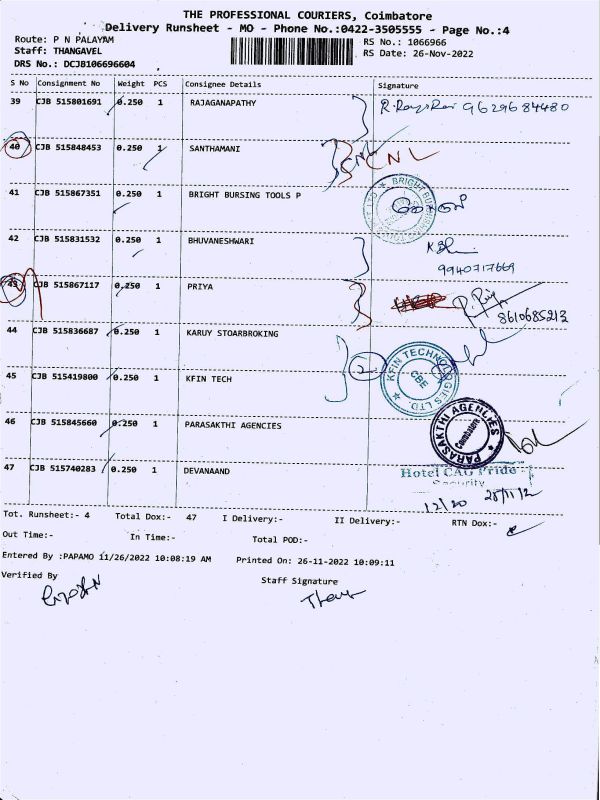 THE PROFESSIONAL COURIERS, Coimbatore
Delivery Runsheet - MO - Phone No.:0422-3505555 - Page No.:4
Route: P N PALAYAM
RS No.: 1066966
Staff: THANGAVEL
RS Date: 26-Nov-2022
DRS No.: DCJB106696604
S No Consignment No Weight PCS Consignee Details Signature
39 CJB 515801691 0.250 1 RAJAGANAPATHY 9629684480
40 CJB 515848453 0.250 1 SANTHAMANI CNL
41 CJB 515867351 0.250 1 BRIGHT BURSING TOOLS P
42 CJB 515831532 0.250 1 BHUVANESHWARI
9940717669
43 CJB 515867117 0.250 1 PRIYA
8610685213
44 CJB 515836687 0.250 1 KARUY STOARBROKING
2
KFIN TECHNOLOGIES LTD. CBE
45 CJB 515419800 0.250 1 KFIN TECH
46 CJB 515845660 0.250 1 PARASAKTHI AGENCIES
PARASAKTHI AGENCIES Coimbatore
47 CJB 515740283 0.250 1 DEVANAAND
Hotel CAG Pride
Security
Tot. Runsheet:- 4 Total Dox:- 47 I Delivery:- II Delivery:- RTN Dox:-
Out Time:- In Time:- Total POD:-
Entered By :PAPAMO 11/26/2022 10:08:19 AM Printed On: 26-11-2022 10:09:11
Verified By
Staff Signature